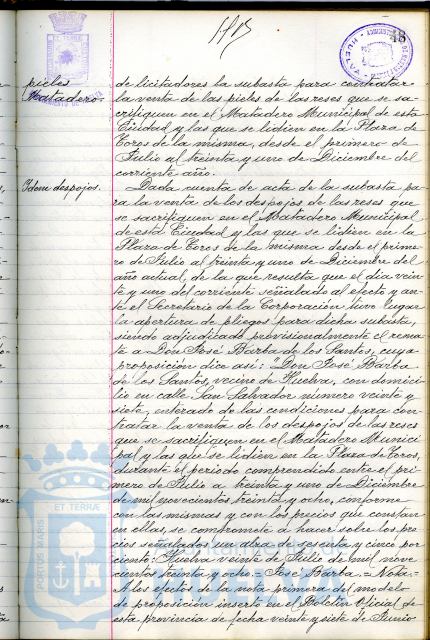 48
pieles
Matadero.
de licitadores la subasta para contratar
la venta de las pieles de las reses que se sa-
crifiquen en el Matadero Municipal de esta
Ciudad y las que se lidien en la Plaza de
Toros de la misma, desde el primero de
Julio al treinta y uno de Diciembre del
corriente año.
Idem despojos.
Dada cuenta de acta de la subasta pa-
ra la venta de los despojos de las reses que
se sacrifiquen en el Matadero Municipal
de esta Ciudad y las que se lidien en la
Plaza de Toros de la misma desde el prime-
ro de Julio al treinta y uno de Diciembre del
año actual, de la que resulta que el dia vein-
te y uno del corriente señalado al efecto y an-
te el Secretario de la Corporación tuvo lugar
la apertura de pliegos para dicha subasta,
siendo adjudicado provisionalmente el rema-
te a Don José Barba de los Santos, cuya
proposición dice asi: "Don José Barba
de los Santos, vecino de Huelva, con domici-
lio en calle San Salvador numero veinte y
siete, enterado de las condiciones para con-
tratar la venta de los despojos de las reses
que se sacrifiquen en el Matadero Munici-
pal y las que se lidien en la Plaza de Toros,
durante el periodo comprendido entre el pri-
mero de Julio a treinta y uno de Diciembre
de mil novecientos treinta y ocho, conforme
con las mismas y con los precios que constan
en ellas, se compromete á hacer sobre los pre-
cios señalados un alza de sesenta y cinco por
ciento: Huelva veinte de Julio de mil nove
cientos treinta y ocho. = José Barba. = Nota =
A los efectos de la nota primera del modelo
de proposición inserto en el Boletin Oficial de
esta provincia de fecha veinte y siete de Junio
PORTUS MARIS
ET TERRÆ
Ayuntamiento de
HUELVA